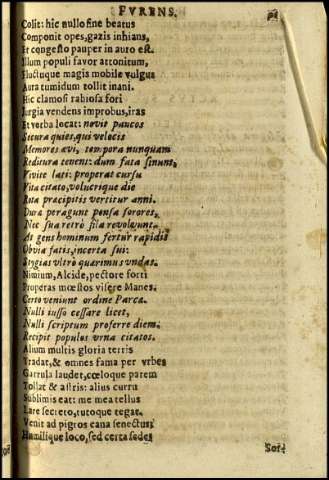 FVRENS.
Colit: hic nullo fine beatus
Componit opes, gazis inhians,
Et congesto pauper in auro est.
Illum populi favor attonitum,
Fluctuque magis mobile vulgus
Aura tumidum tollit inani.
Hic clamosi rabiosa fori
Iurgia vendens improbus, iras
Et verba locat: novit paucos
Secura quies, qui velocis
Memores ævi, tempora nunquam
Reditura tenent: dum fata sinunt,
Vivite læti: properat cursu
Vita citato, volucrique die
Rota præcipitis vertitur anni.
Dura peragunt pensa sorores,
Nec sua retrò fila revolvunt.
At gens hominum fertur rapidis
Obvia fatis, incerta sui:
Stygias vltrò quærimus vndas.
Nimium, Alcide, pectore forti
Properas mœstos visere Manes.
Certo veniunt ordine Parcæ.
Nulli iusso cessare licet,
Nulli scriptum proferre diem.
Recipit populos vrna citatos.
Alium multis gloria terris
Tradat, & omnes fama per vrbes
Garrula laudet, cœloque parem
Tollat & astris: alius curru
Sublimis eat: me mea tellus
Lare secreto, tutoque tegat.
Venit ad pigros cana senectus,
Humilique loco, sed certa sedet
Sor-